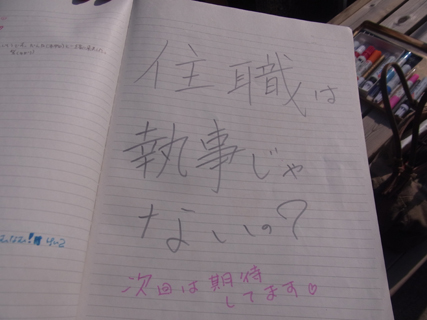 住職は
執事じゃ
ないの?
次回は期待
してます♡